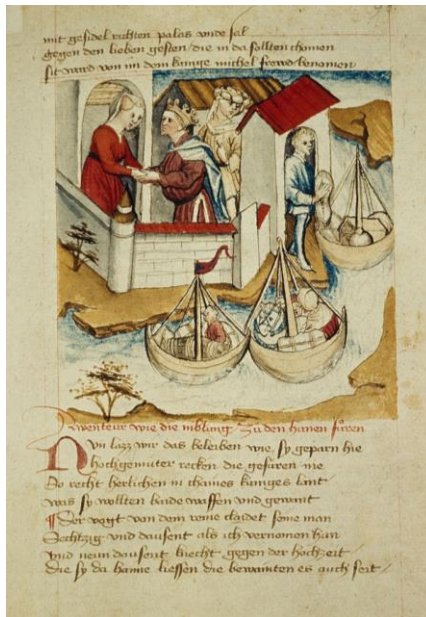 mit gesidel richten palas vnde sal
gegen den lieben gesten / die in da sollten chomen
sit ward von im dem kunige michel frewd benomen
Awenteur wie die niblung zu den hunen furen
Nvn lazz wir das beleiben wie sy geparn hie
hochgemuter recken die gefuren nie
So recht herlichen in chaines kuniges lant
was sy wollten baide waffen vnd gewant
Der vogt von dem reine chlaidet seine man
Sechtzig vnd dausent als ich vernomen han
vnd neun dausent knecht gegen der hochzeit /
die sy da hanne liessen die bewainten es auch seit /